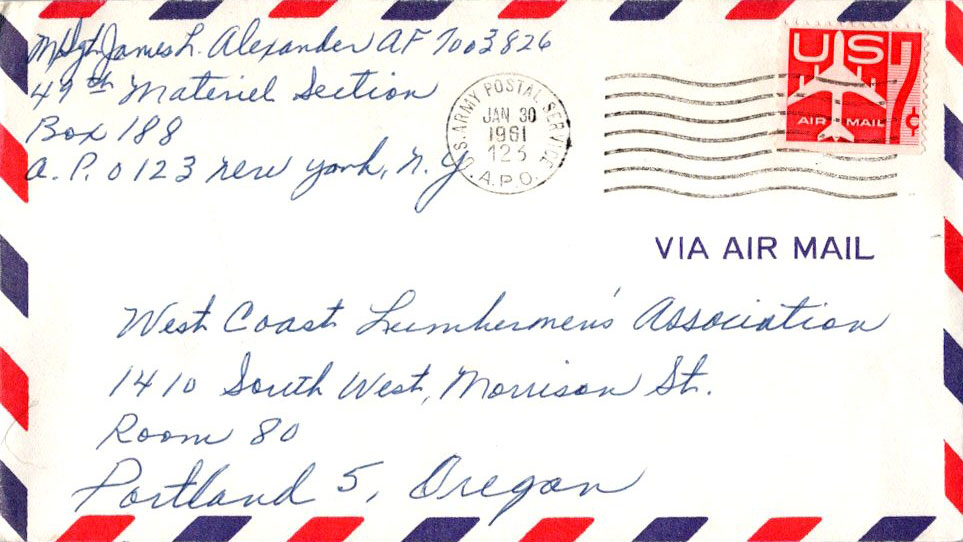 M/Sgt James L. Alexander AF 7003826
49th Materiel Section
Box 188
A.P.O 123 New York, N.Y.
U.S. ARMY POSTAL SERVICE
JAN 30
1961
123
A.P.O.
US 7¢
AIR MAIL
VIA AIR MAIL
West Coast Lumbermen's Association
1410 South West, Morrison St.
Room 80
Portland 5, Oregon